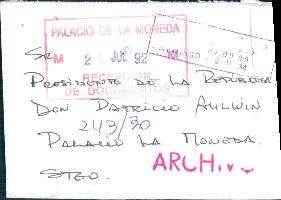 PALACIO DE LA MONEDA
M 2 JUL 92 M
RECEPCION
DE DOCUMENTOS
SR.
PRESIDENTE DE LA REPUBLICA
DON PATRICIO AYLWIN
243/30
PALACIO LA MONEDA.
ARCHIVO
STGO.